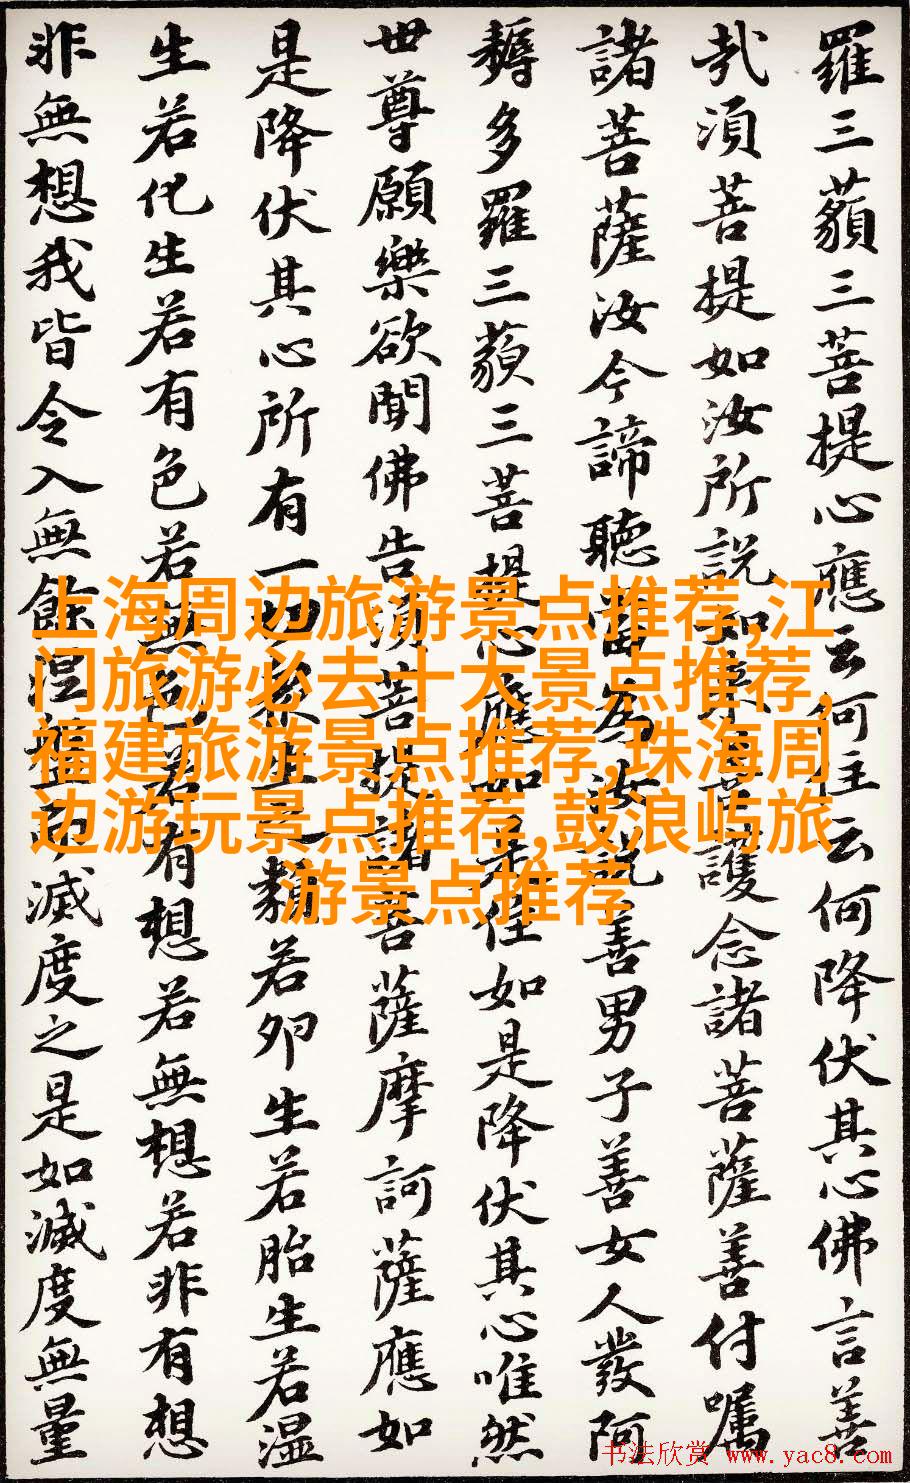 羅三藐三菩提心應云何住云何降伏其心佛言善
哉須菩提如汝所說如來善護念諸菩薩善付囑
諸菩薩汝今諦聽當為汝說善男子善女人發阿
耨多羅三藐三菩提心應如是住如是降伏其心唯然
世尊願樂欲聞佛告須菩提諸菩薩摩訶薩應如
是降伏其心所有一切眾生之類若卵生若胎生若濕
生若化生若有色若無色若有想若無想若非有想
非無想我皆令入無餘涅槃而滅度之是如滅度無量
上海周边旅游景点推荐,江
门旅游必去十大景点推荐,
福建旅游景点推荐,珠海周
边游玩景点推荐,鼓浪屿旅
游景点推荐
书法欣赏 www.yac8.com